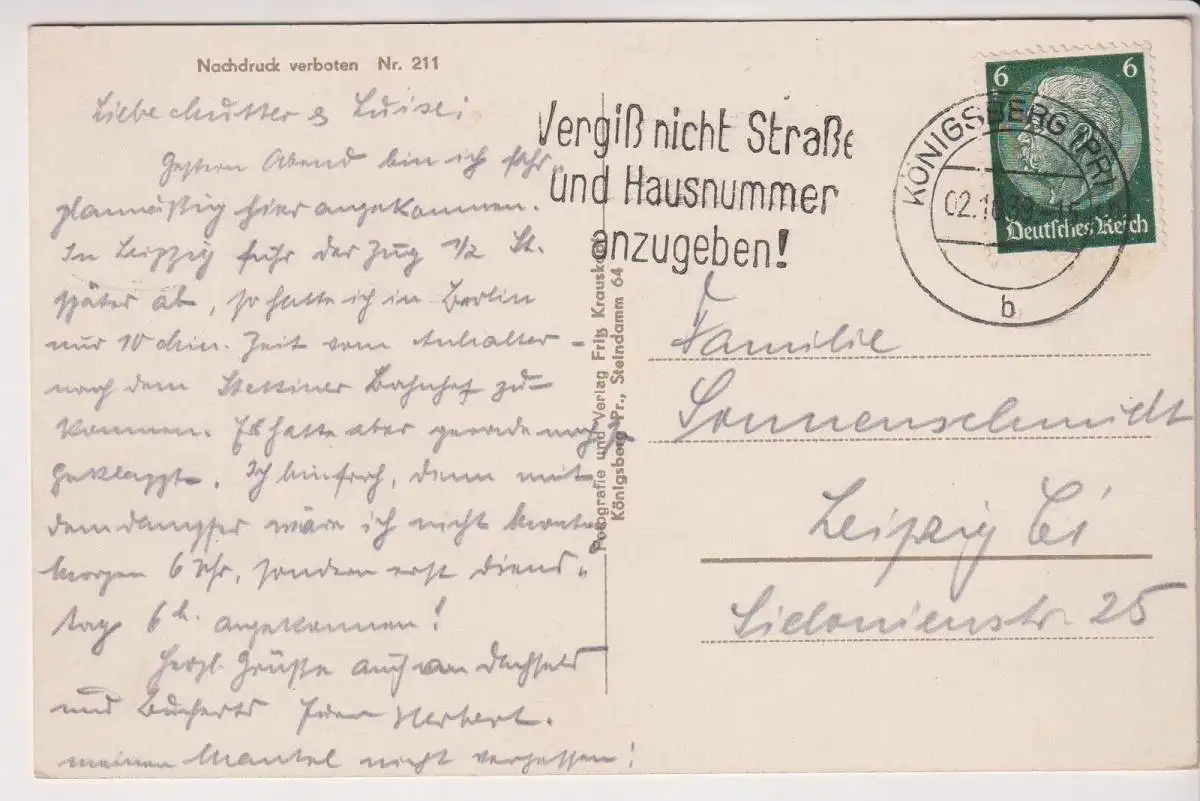 Nachdruck verboten Nr. 211
Liebe Mutter & Luise!
Gestern Abend bin ich fahr
planmäßig hier angekommen.
In Leipzig fuhr der Zug 1/2 St.
später ab, so hatte ich in Berlin
nur 10 Min. Zeit vom Anhalter-
nach dem Stettiner Bahnhof zu
kommen. Es hatte aber gerade noch
geklappt. Ich bin froh, denn mit
dem Dampfer wäre ich nicht Montag
Morgen 6 Uhr, sondern erst Diens-
tag 6 h. angekommen!
Herzl. Grüße auch an
und Euer Herbert.
meinen Mantel nicht vergessen!
Fotografie und Verlag Fritz Krauskopf
Königsberg Pr., Steindamm 64
Vergiß nicht Straße
und Hausnummer
anzugeben!
KÖNIGSBERG (PR)
02.10.39
b
6 6
Deutsches Reich
Familie
Sonnenschmidt
Leipzig C1
Sidonienstr. 25